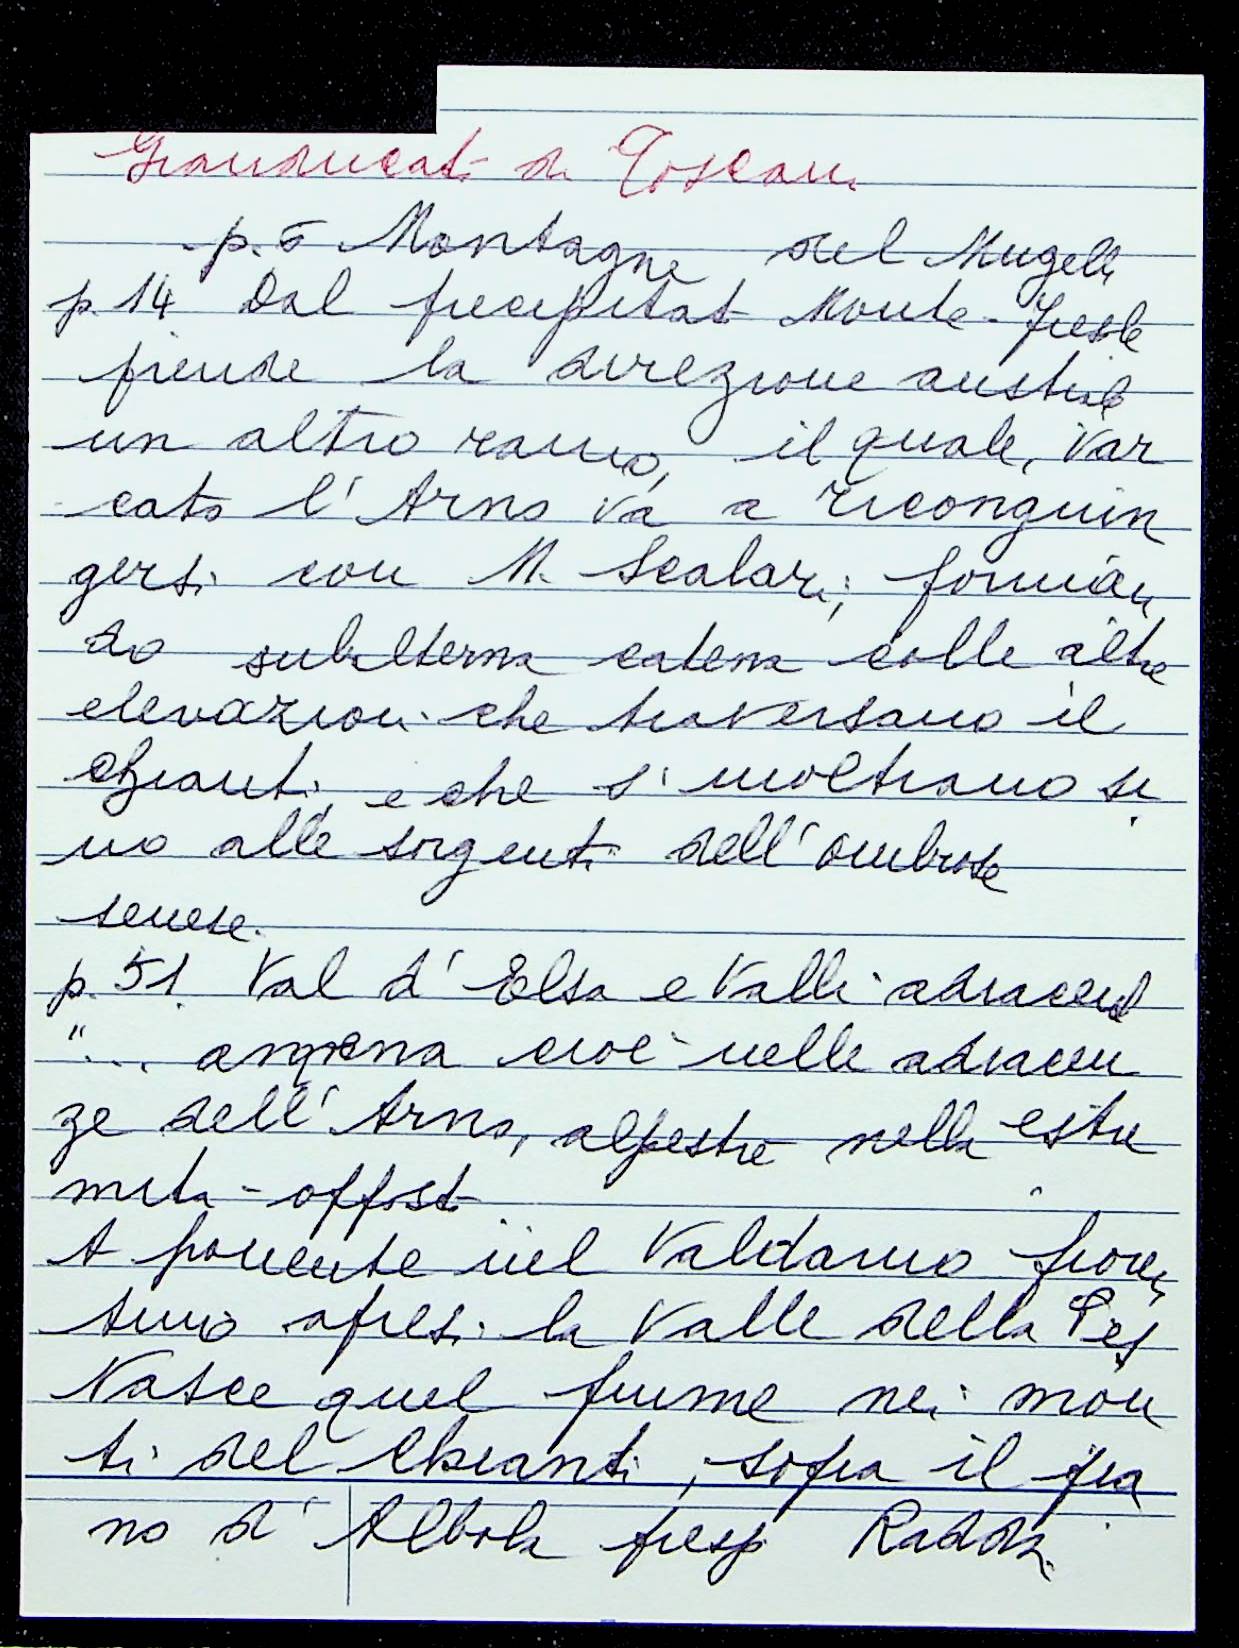 Granducato di Toscana
p. 5 Montagne del Mugello
p. 14 Dal precipitato Monte-
prende la direzione australe
un altro ramo, il quale, var
cato l'Arno va a ricongiun
gersi con M. Scalari; forman
do subalterna catena colle altre
elevazioni che traversano il
Chianti, e che s'inoltrano si
no alle sorgenti dell'Ombrone
senese.
p. 51 Val d'Elsa e Valli adiacenti
"... amena cioè nelle adiacen
ze dell'Arno, alpestre nella estre
mità opposta
A ponente del Valdarno fioren
tino apresi la Valle della Pesa
Nasce quel fiume nei mon
ti del Chianti, sopra il pia
no d'Albola presso Radda.